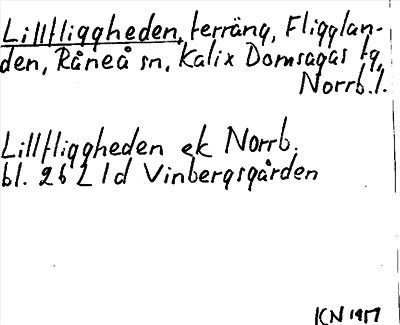 Lillfliggheden, terräng, Fligglan-
den, Råneå sn, Kalix Domsagas tg,
Norrb. l.
Lillfliggheden ek Norrb.
bl. 26 L 1d Vinbergsgården
KN 1917